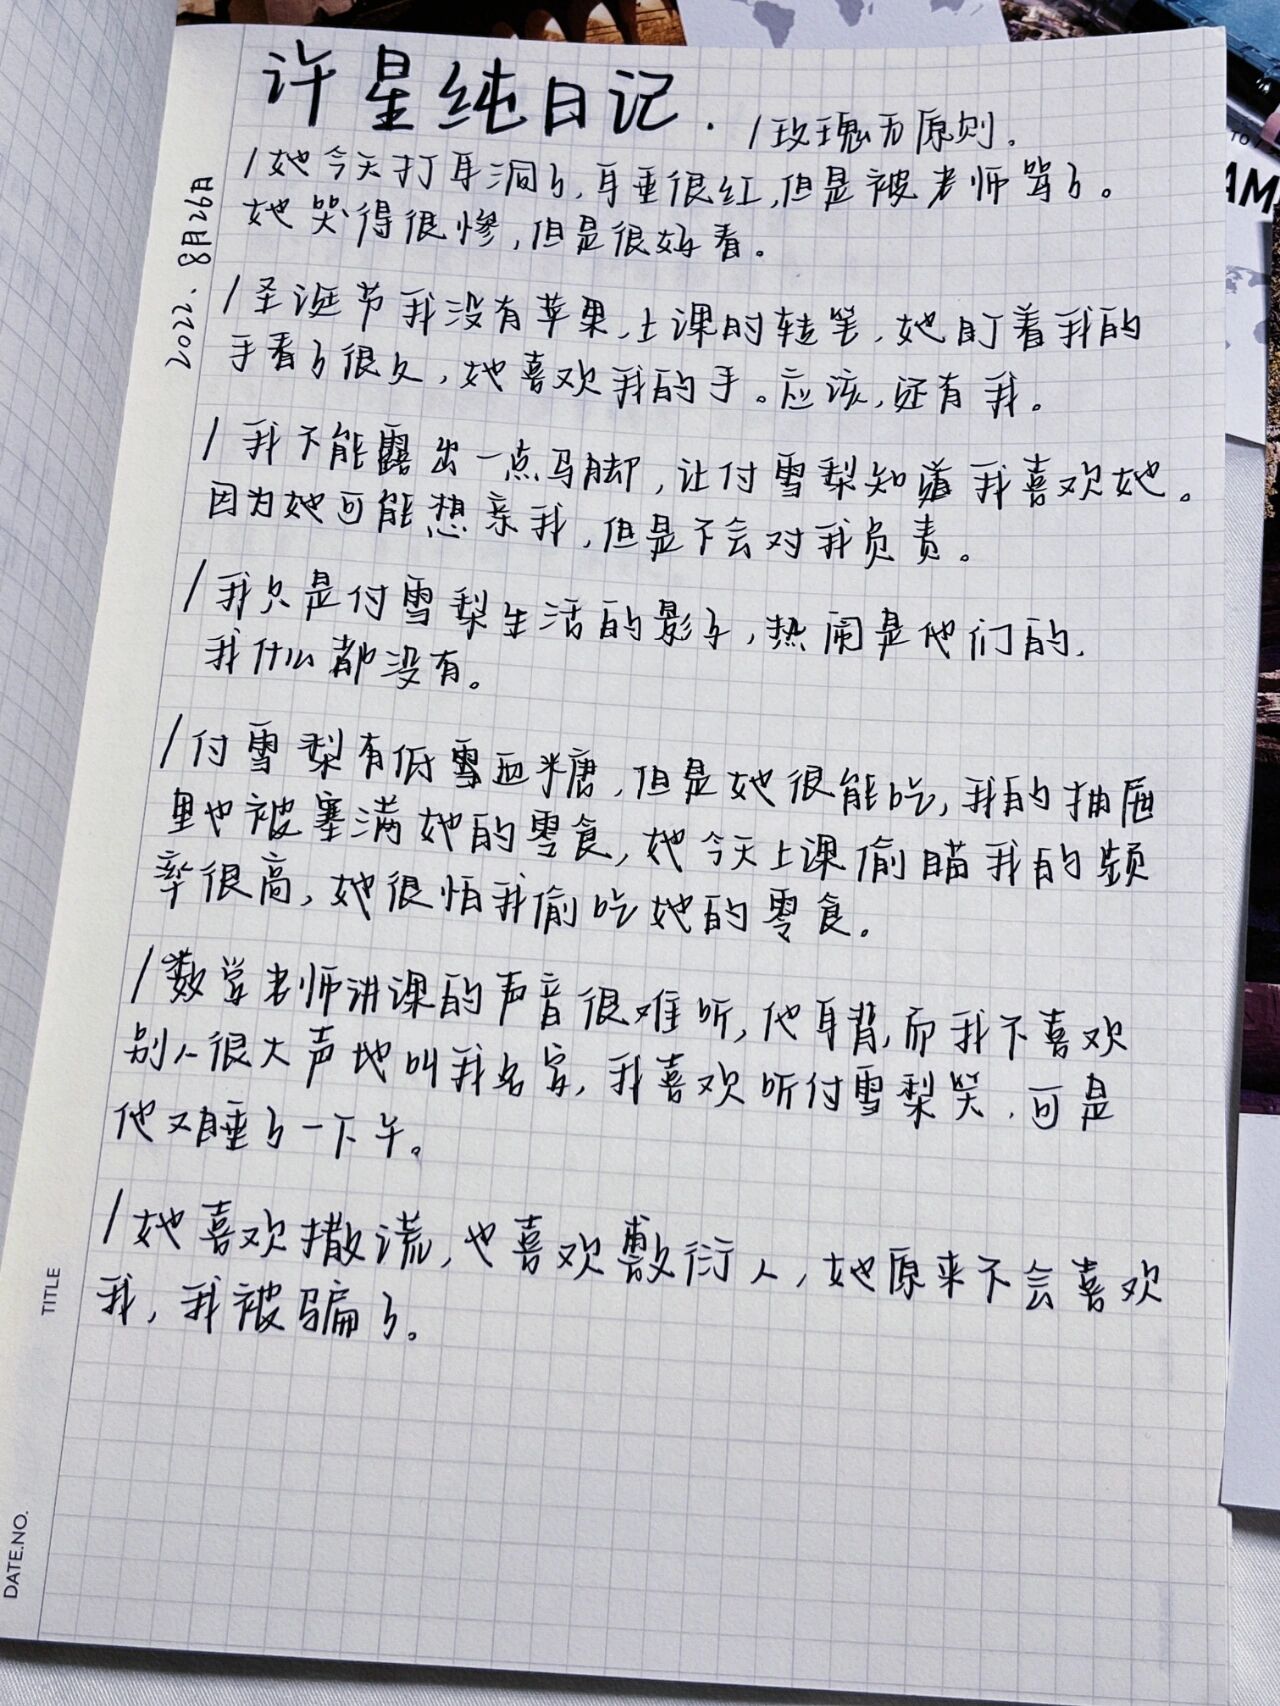 许星纯日记.
/玫瑰为原则.
2022.8月29日
/她今天打耳洞了,耳垂很红,但是被老师骂了。
她哭得很惨,但是很好看。
/圣诞节我没有苹果,上课时转笔,她盯着我的
手看了很久,她喜欢我的手。应该,还有我。
/我不能露出一点马脚,让付雪梨知道我喜欢她。
因为她可能想亲我,但是不会对我负责。
/我只是付雪梨生活的影子,热闹是他们的,
我什么都没有。
/付雪梨有低血糖,但是她很能吃,我的抽屉
里也被塞满她的零食,她今天上课偷瞄我的频
率很高,她很怕我偷吃她的零食。
/数学老师讲课的声音很难听,他耳背,而我不喜欢
别人很大声地叫我名字,我喜欢听付雪梨笑,可是
他又睡了一下午。
/她喜欢撒谎,也喜欢敷衍人,她原来不会喜欢
我,我被骗了。
TITLE
DATE.NO.
AMA